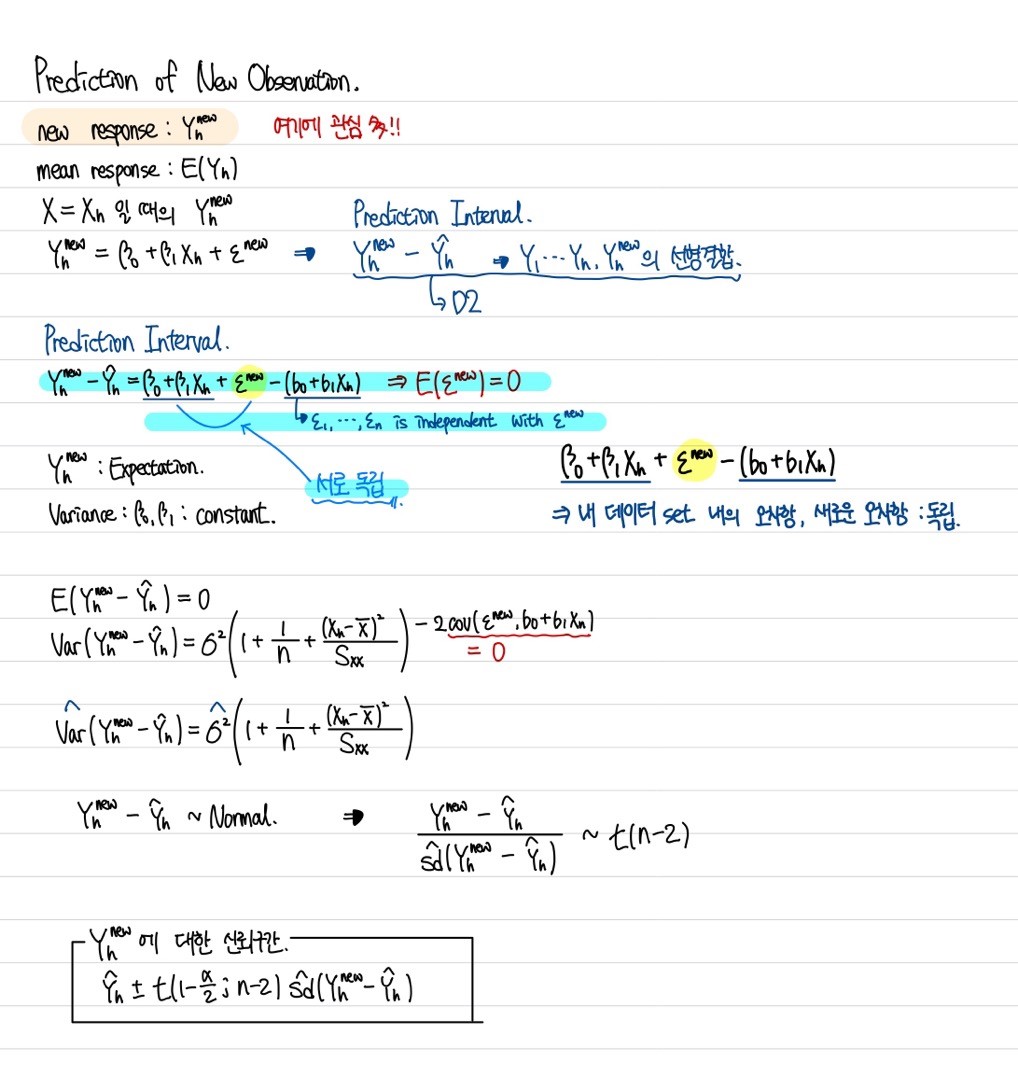 Prediction of New Observation.
new response : Yₕⁿᵉʷ 여기에 관심 多!!
mean response : E(Yₕ)
X = Xₕ 일 때의 Yₕⁿᵉʷ
Prediction Interval.
Yₕⁿᵉʷ = β₀ + β₁Xₕ + εⁿᵉʷ ⇒ Yₕⁿᵉʷ - Ŷₕ → Y₁ ⋯ Yₙ, Yₕⁿᵉʷ의 선형결합.
↳ D2
Prediction Interval.
Yₕⁿᵉʷ - Ŷₕ = β₀ + β₁Xₕ + εⁿᵉʷ - (b₀ + b₁Xₕ) ⇒ E(εⁿᵉʷ) = 0
↳ ε₁, ⋯, εₙ is independent with εⁿᵉʷ
서로 독립
Yₕⁿᵉʷ : Expectation.
Variance : β₀, β₁ : constant.
β₀ + β₁Xₕ + εⁿᵉʷ - (b₀ + b₁Xₕ)
⇒ 내 데이터 set 내의 오차항, 새로운 오차항 : 독립.
E(Yₕⁿᵉʷ - Ŷₕ) = 0
Var(Yₕⁿᵉʷ - Ŷₕ) = σ²(1 + 1/n + (Xₕ - X̄)²/Sxx) - 2cov(εⁿᵉʷ, b₀ + b₁Xₕ)
= 0
V̂ar(Yₕⁿᵉʷ - Ŷₕ) = σ̂²(1 + 1/n + (Xₕ - X̄)²/Sxx)
Yₕⁿᵉʷ - Ŷₕ ~ Normal. ⇒ (Yₕⁿᵉʷ - Ŷₕ)/ŝd(Yₕⁿᵉʷ - Ŷₕ) ~ t(n-2)
Yₕⁿᵉʷ에 대한 신뢰구간.
Ŷₕ ± t(1 - α/2 ; n-2) ŝd(Yₕⁿᵉʷ - Ŷₕ)